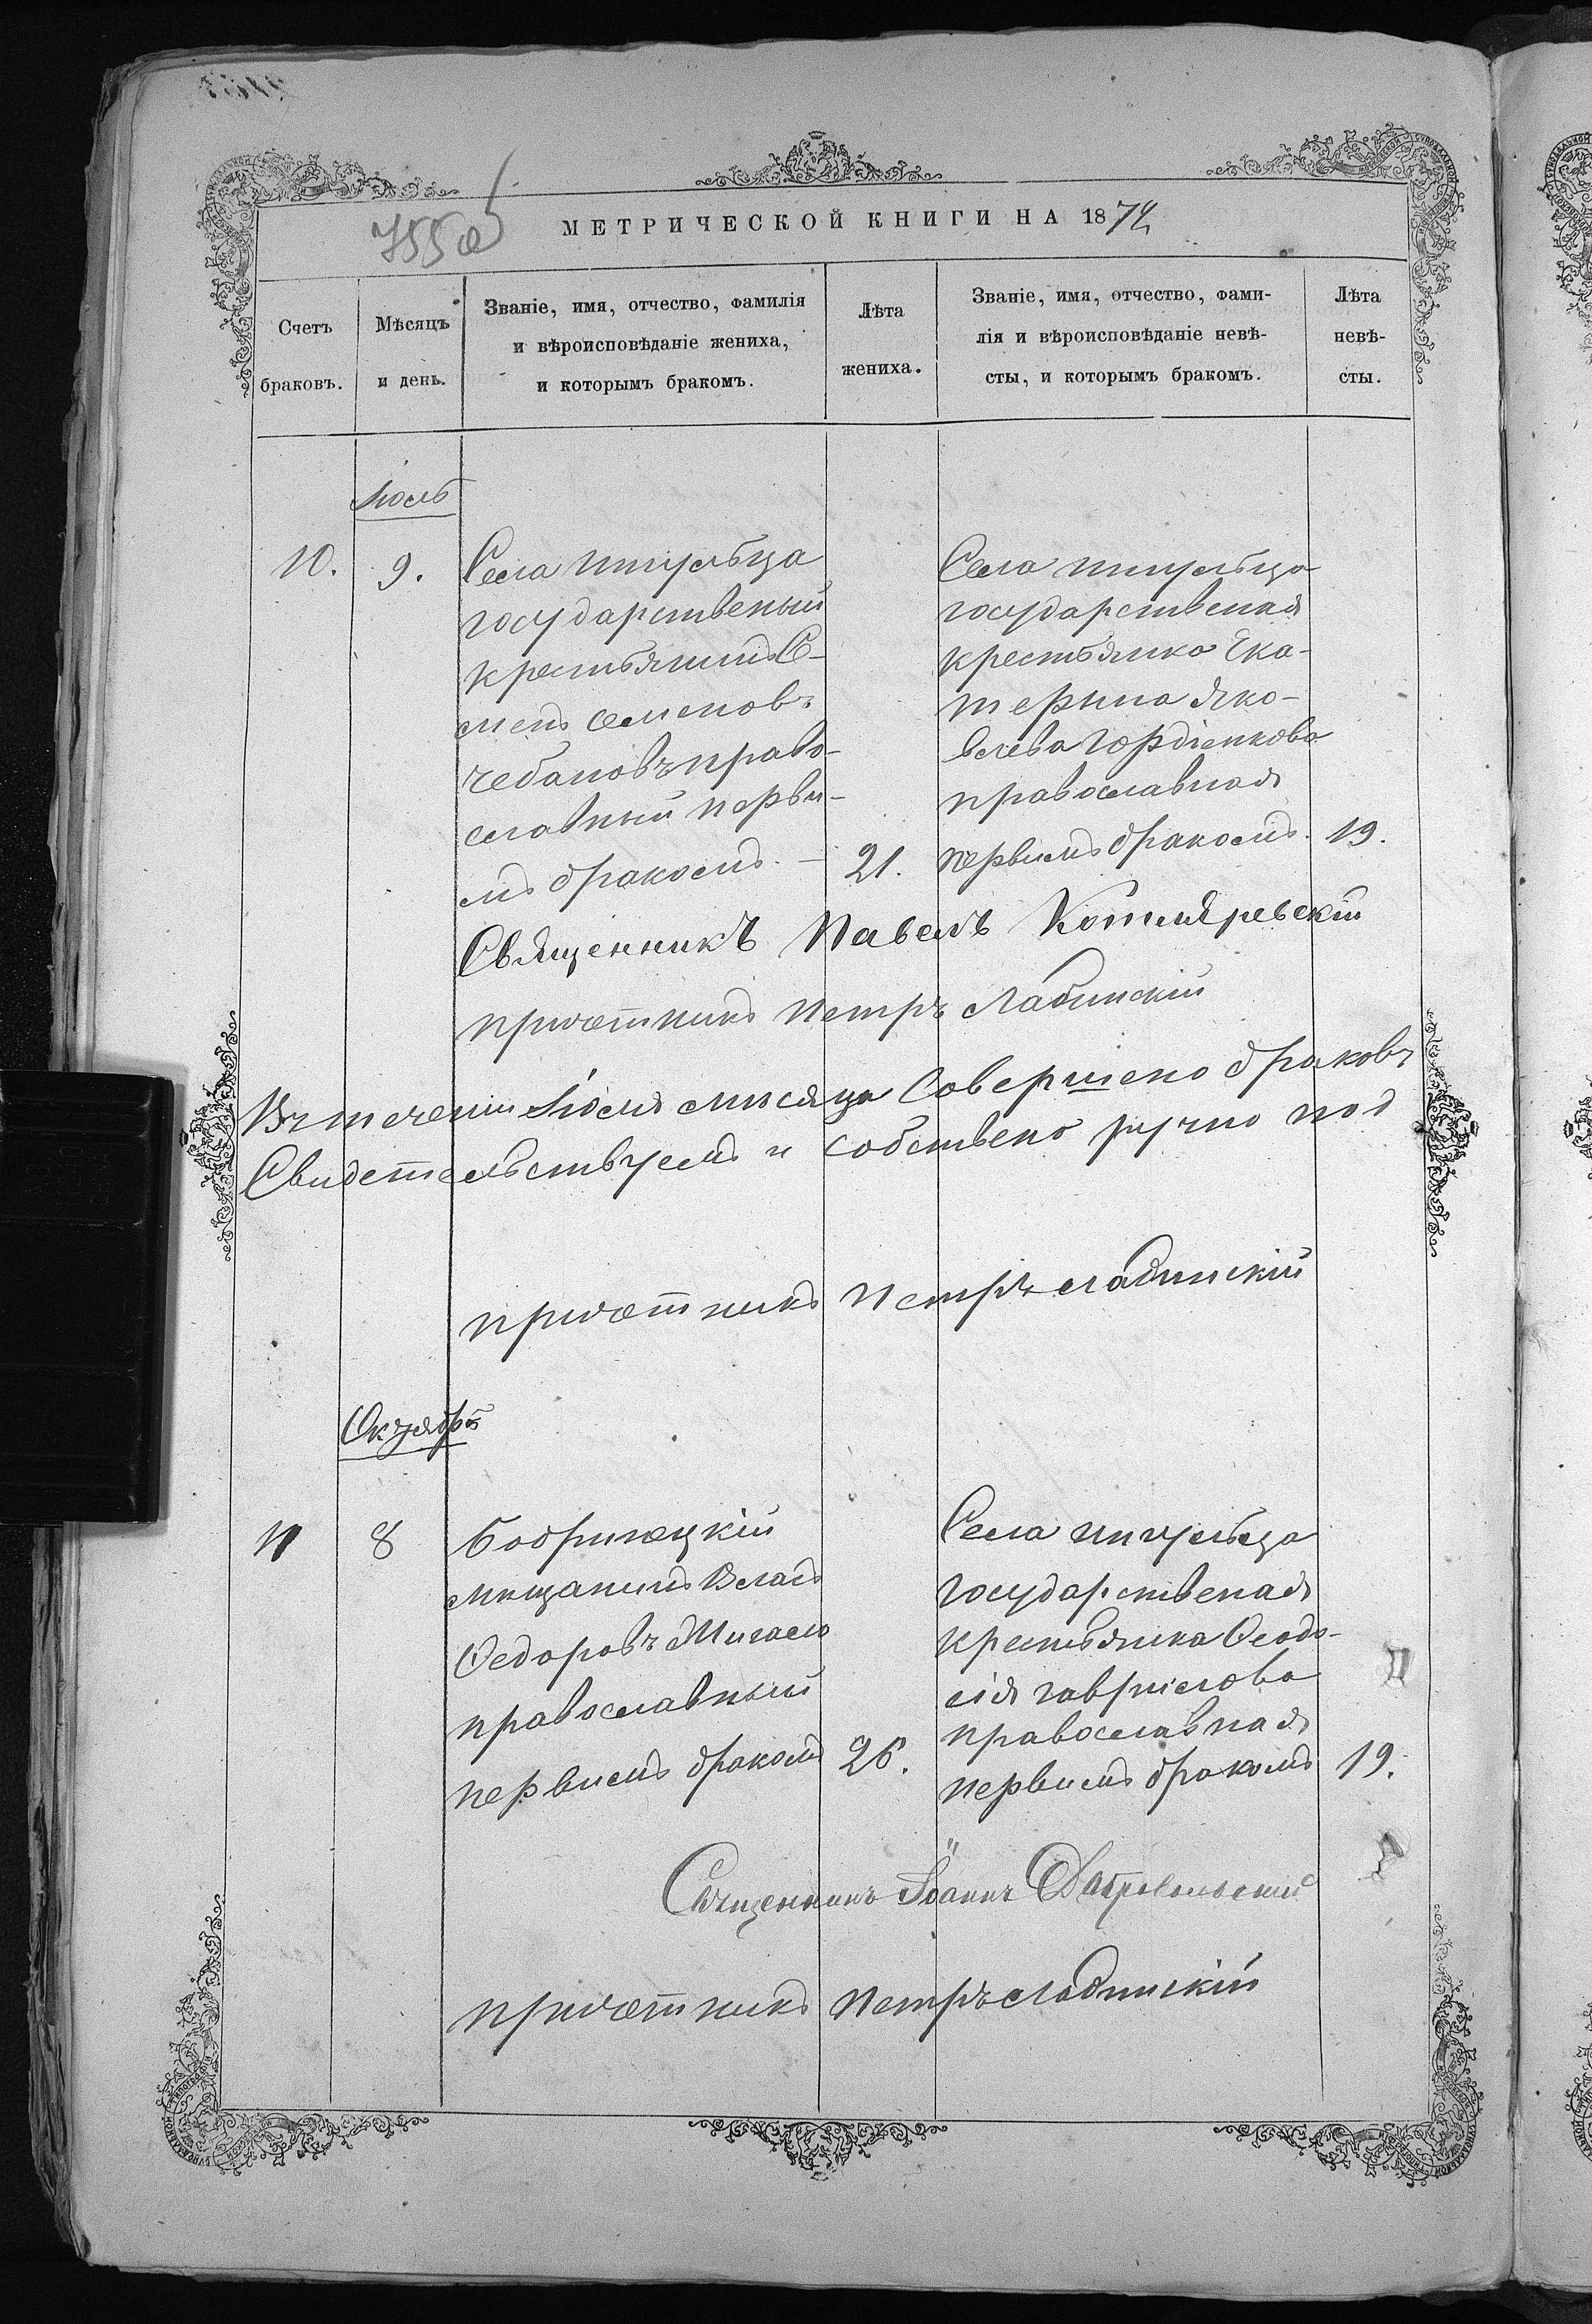 МЕТРИЧЕСКОЙ КНИГИ НА 1874
Счетъ
браковъ.
Мѣсяцъ
и день.
Званіе, имя, отчество, фамилія
и вѣроисповѣданіе жениха,
и которымъ бракомъ.
Лѣта
жениха.
Званіе, имя, отчество, фами-
лія и вѣроисповѣданіе невѣ-
сты, и которымъ бракомъ.
Лѣта
невѣ-
сты.
Іюль
10.
9.
Села
государственый
крестьянинъ Се-
менъ Семеновъ
Чебановъ право-
славный первы-
мъ бракомъ.
21.
Села
государственая
крестьянка Ека-
терина Яко-
влева Гордіенкова
православная
первымъ бракомъ.
19.
Священникъ Павелъ Котляревскій
причетникъ Петръ Лабинскій
Въ течени Іюля мѣсяца Совершено браковъ
Свидетельствуемъ и собствено ручно под
причетникъ Петръ Лабинскій
Октябрь
11
8
Бобринецкій
мещанинъ Власъ
Федоровъ
православный
первымъ бракомъ
26.
Села
государственая
крестьянка Феодо-
сія Гавриілова
православная
первымъ бракомъ
19.
Священникъ Іоаннъ Добровольский
причетникъ Петръ Лабинскій